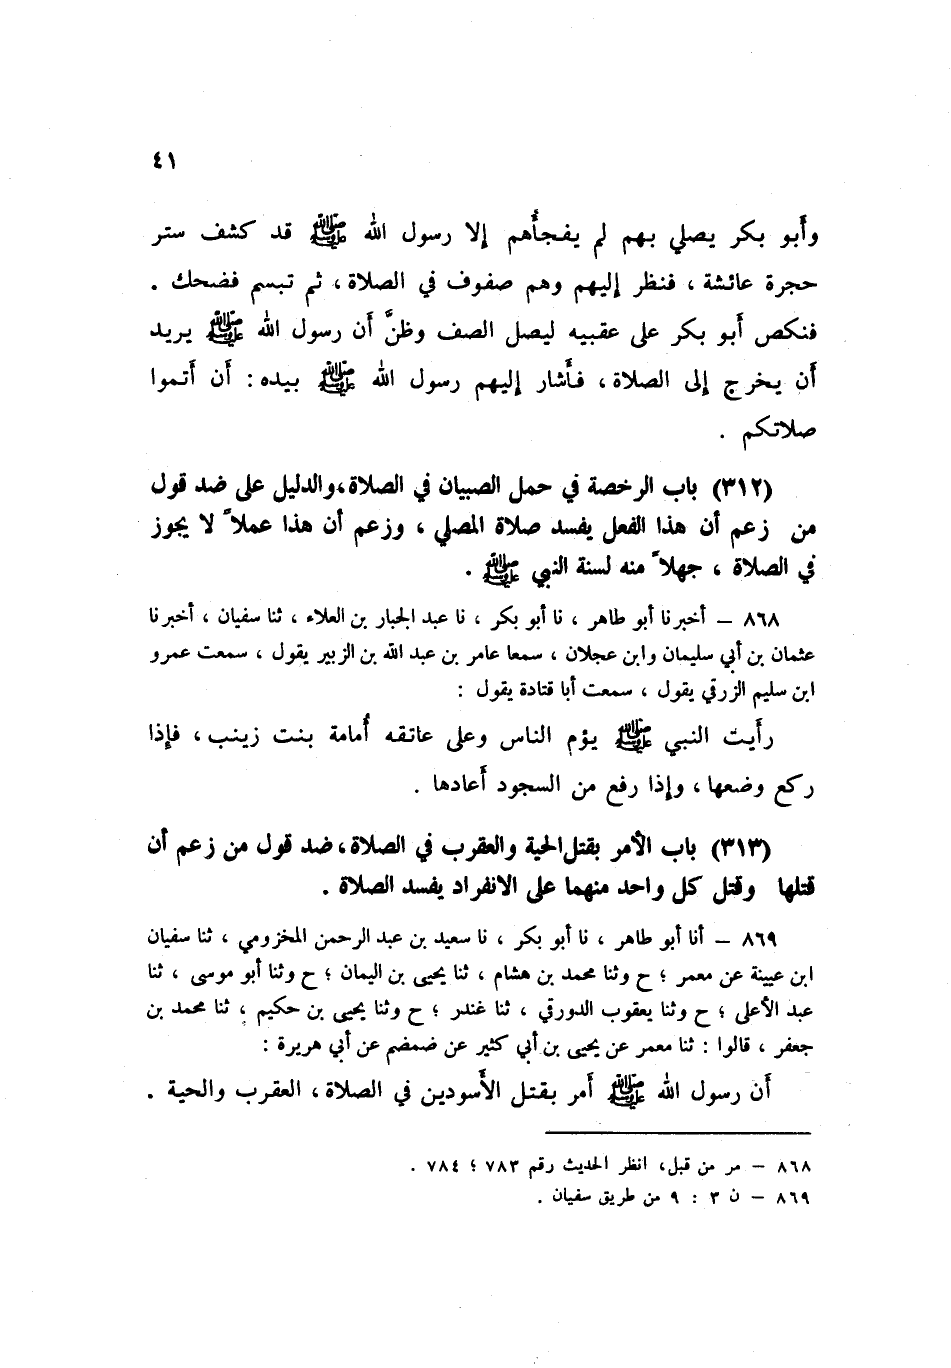 ٤١
وأبو بكر يصلي بهم لم يفجأهم إلا رسول الله ﷺ قد كشف ستر
حجرة عائشة ، فنظر إليهم وهم صفوف في الصلاة ، ثم تبسم فضحك .
فنكص أبو بكر على عقبيه ليصل الصف وظنَّ أن رسول الله ﷺ يريد
أن يخرج إلى الصلاة ، فأشار إليهم رسول الله ﷺ بيده : أن أتموا
صلاتكم .
(٣١٢) باب الرخصة في حمل الصبيان في الصلاة ، والدليل على ضد قول
من زعم أن هذا الفعل يفسد صلاة المصلي ، وزعم أن هذا عملاً لا يجوز
في الصلاة ، جهلاً منه لسنة النبي ﷺ .
٨٦٨ – أخبرنا أبو طاهر ، نا أبو بكر ، نا عبد الجبار بن العلاء ، ثنا سفيان ، أخبرنا
عثمان بن أبي سليمان وابن عجلان ، سمعا عامر بن عبد الله بن الزبير يقول ، سمعت عمرو
ابن سليم الزرقي يقول ، سمعت أبا قتادة يقول :
رأيت النبي ﷺ يؤم الناس وعلى عاتقه أُمامة بنت زينب ، فإذا
ركع وضعها ، وإذا رفع من السجود أعادها .
(٣١٣) باب الأمر بقتل الحية والعقرب في الصلاة ، ضد قول من زعم أن
قتلها وقتل كل واحد منهما على الانفراد يفسد الصلاة .
٨٦٩ – أنا أبو طاهر ، نا أبو بكر ، نا سعيد بن عبد الرحمن المخزومي ، ثنا سفيان
ابن عيينة عن معمر ؛ ح وثنا محمد بن هشام ، ثنا يحيى بن اليمان ؛ ح وثنا أبو موسى ، ثنا
عبد الأعلى ؛ ح وثنا يعقوب الدورقي ، ثنا غندر ؛ ح وثنا يحيى بن حكيم ، ثنا محمد بن
جعفر ، قالوا : ثنا معمر عن يحيى بن أبي كثير عن ضمضم عن أبي هريرة :
أن رسول الله ﷺ أمر بقتل الأسودين في الصلاة ، العقرب والحية .
٨٦٨ – مر من قبل ، انظر الحديث رقم ٧٨٣ ؛ ٧٨٤ .
٨٦٩ – ن ٣ : ٩ من طريق سفيان .